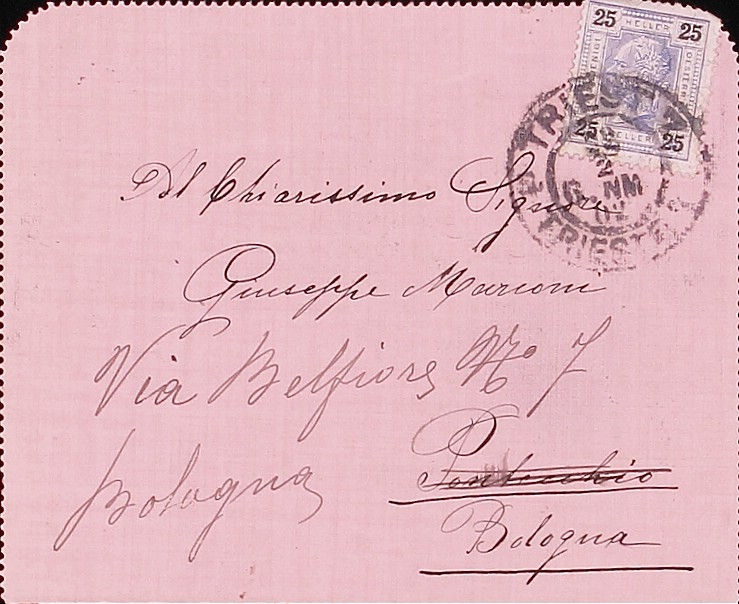 25 HELLER 25
25 HELLER 25
TRIEST
NM
TRIESTE
Al Chiarissimo Signore
Giuseppe Marconi
Via Belfiore No 7
Pontecchio
Bologna
Bologna